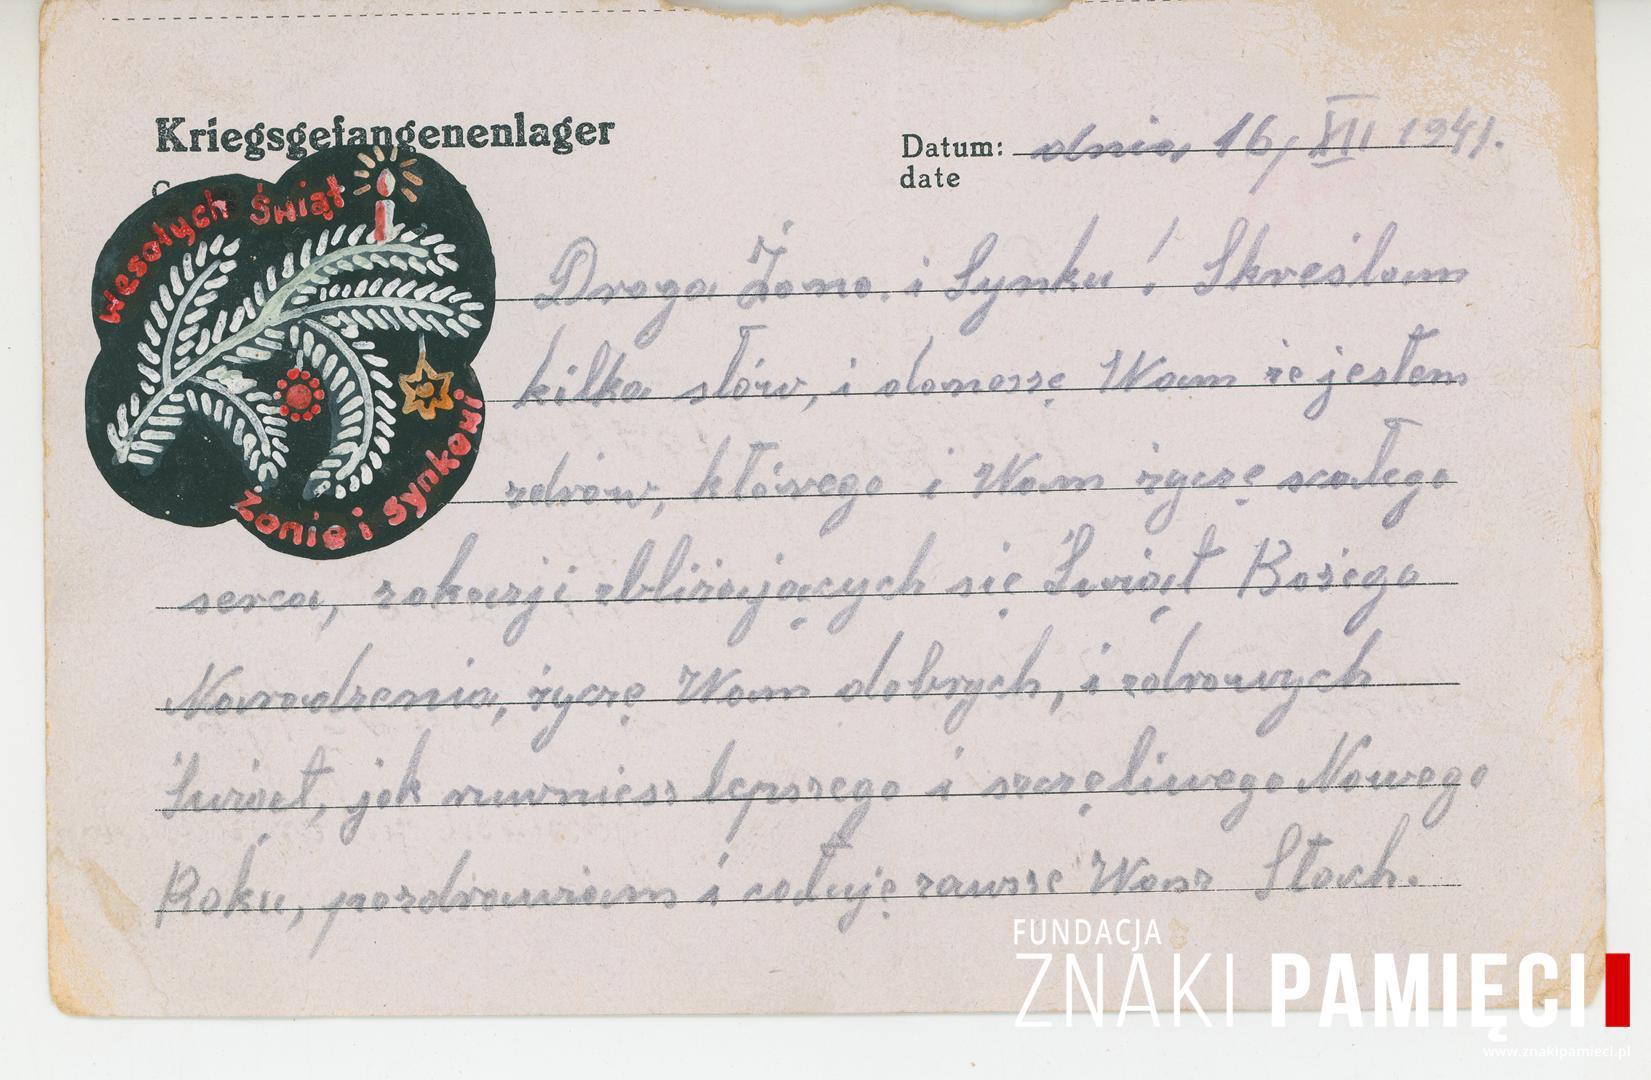 Kriegsgefangenenlager
Datum: dnia 16, XII 1941.
date
Wesołych Świąt
Żonie i Synkowi
Droga Żono i Synku! Skreślam
kilka słów, i donoszę Wam że jestem
zdrow, którego i Wam życzę scałego
serca, zokazji zbliżających się Świąt Bożego
Narodzenia, życzę Wam dobrych, i zdrowych
Świąt, jak ruwniesz lepszego i szczęliwego Nowego
Roku, pozdrawiam i całuję zawsze Wasz Stach.
FUNDACJA
ZNAKI PAMIĘCI
www.znakipamieci.pl